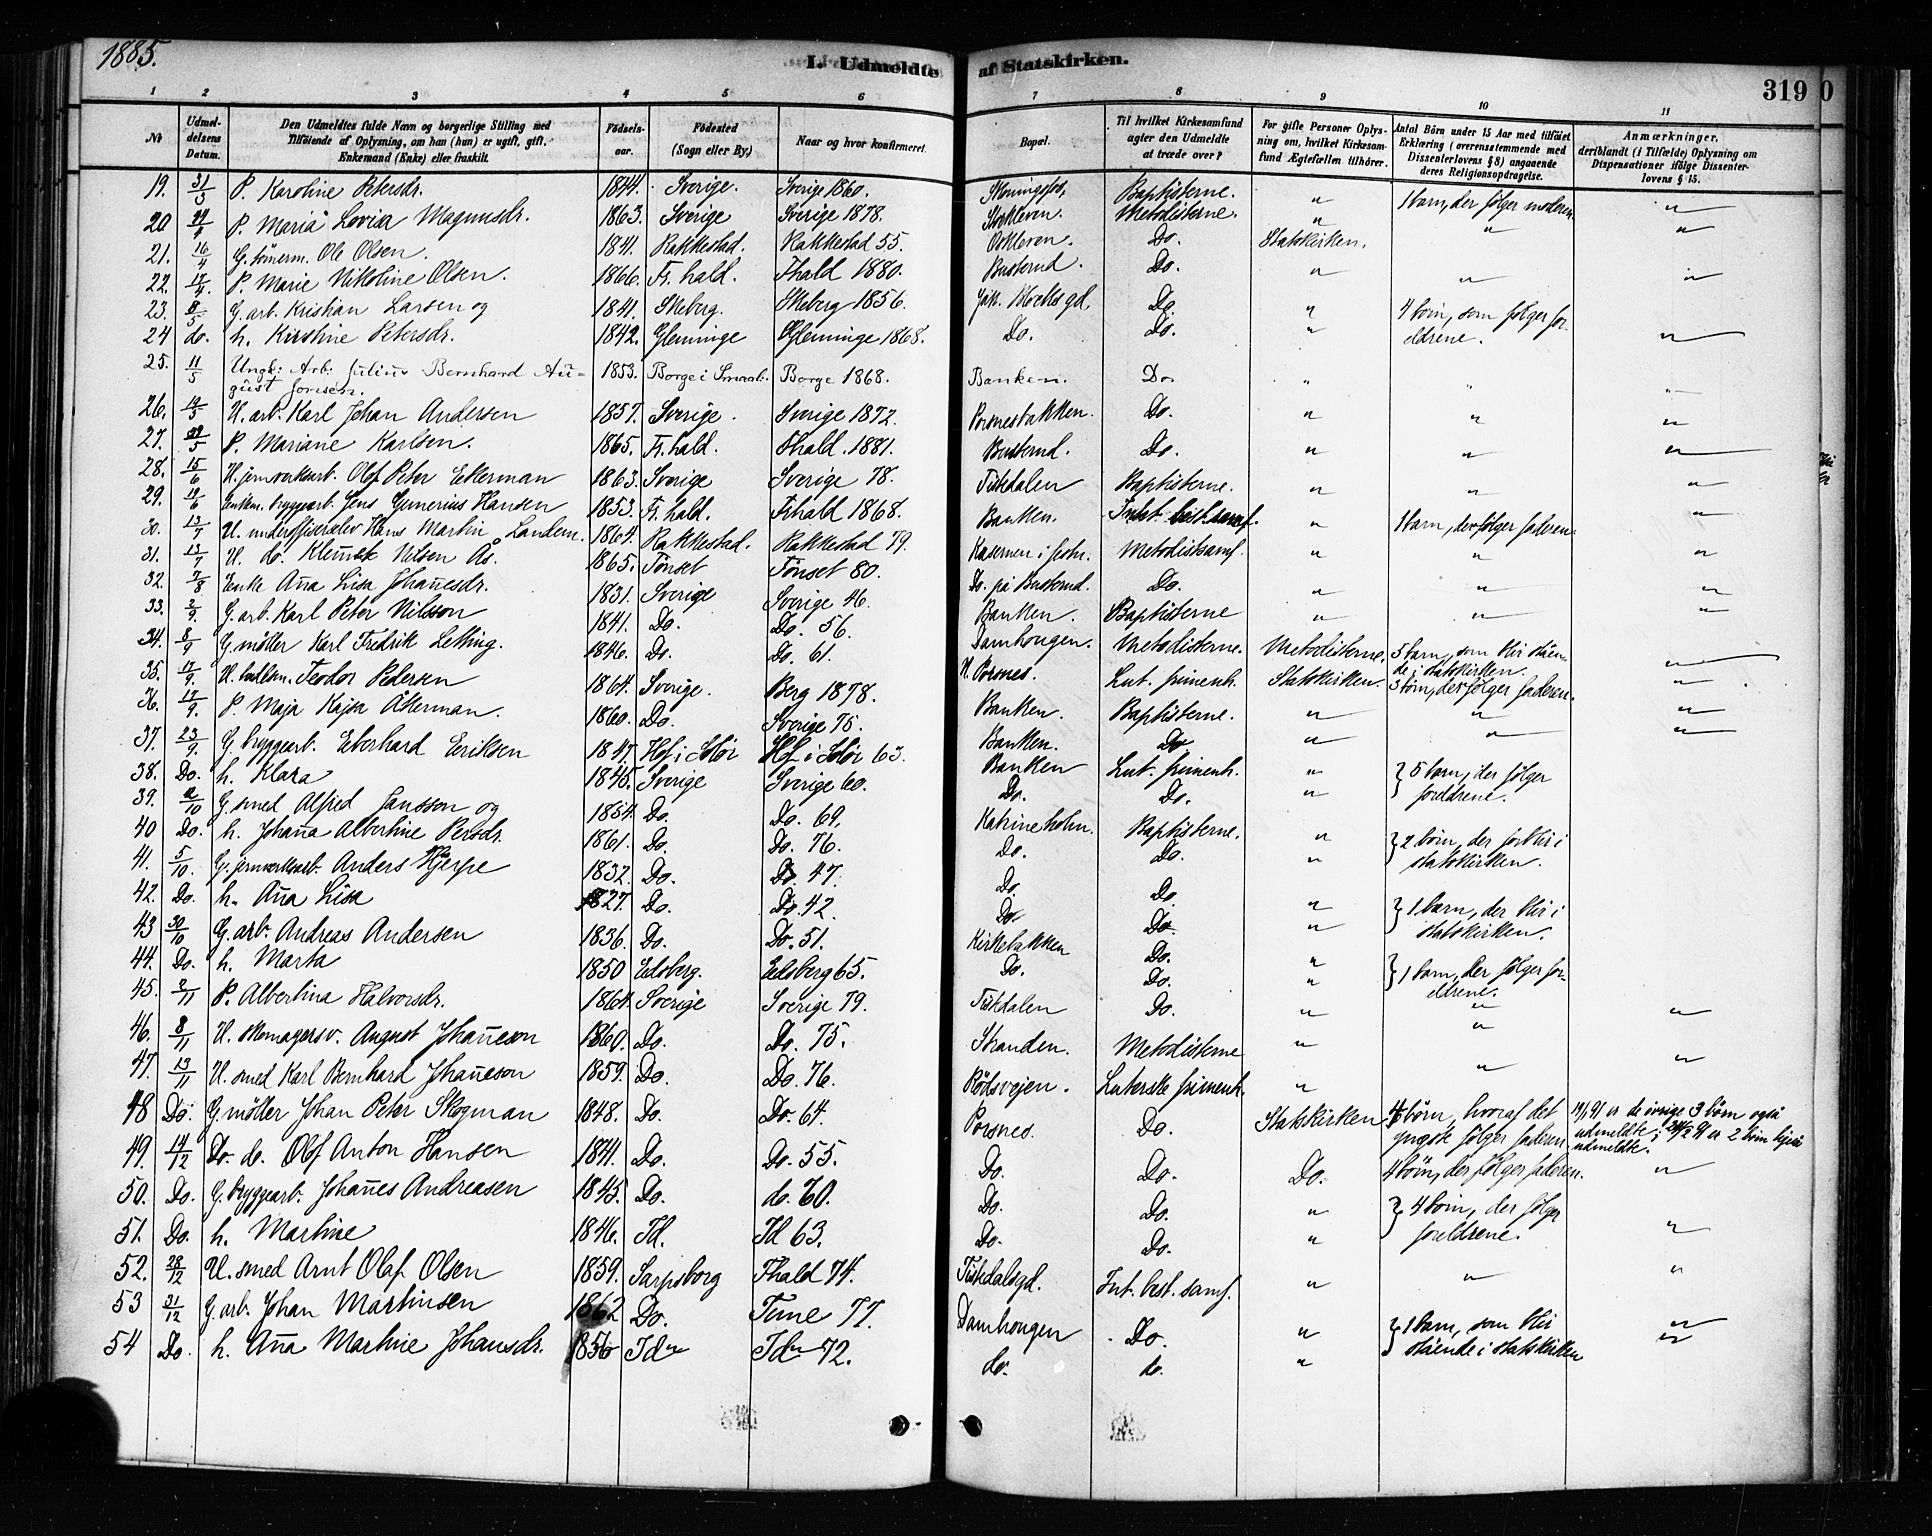 1885.
I. Udmeldte af Statskirken.
319
0
1 2 3 4 5 6 7 8 9 10 11
No
Udmel-
delsens
Datum.
Den Udmeldtes fulde Navn og borgerlige Stilling med
Tilføiende af Oplysning, om han (hun) er ugift, gift,
Enkemand (Enke) eller fraskilt.
Fødsels-
aar.
Fødested
(Sogn eller By.)
Naar og hvor konfirmeret.
Bopæl.
Til hvilket Kirkesamfund
agter den Udmeldte
at træde over?
For gifte Personer Oplys-
ning om, hvilket Kirkesam-
fund Ægtefællen tilhører.
Antal Børn under 15 Aar med tilføiet
Erklæring (overensstemmende med
Dissenterlovens § 8) angaaende
deres Religionsopdragelse.
Anmærkninger,
deriblandt (i Tilfælde) Oplysning om
Dispensationer ifølge Dissenter-
lovens § 15.
19. 31/3 P. Karoline Petersdr. 1844. Sverige. Sverige 1860. Baptisterne. " 1 barn, der følger moderen "
20 P. Maria Lovisa Magnusdr. 1863. Sverige Sverige 1878. Metodisterne. " " "
21. 16/4 G. tömerm. Ole Olsen. 1841. Rakkestad. Rakkestad 55. Do. Statskirken.
22. 17/4. P. Marie Nikoline Olsen. 1866. Fr. hald. Fhald 1880. Busterud. Do. " " "
23. 8/5 G. arb. Kristian Larsen og 1841. Skeberg. Skeberg 1856. Do " 4 børn, som følger for-
24 do. h. Kirstine Petersdr. 1842. Glemminge Glemminge 1868. Do. Do. " eldrene. "
25. 11/5 Ungk: Arb: Julius Bernhard Au-
gust Jonsen. 1853. Borge i Smaal. Borge 1868. Banken. Do. " " "
26. 19/5 U. arb. Karl Johan Andersen 1857. Sverige. Sverige 1872. Porsnesbakken. Do. " " "
27. 22/5 P. Mariane Karlsen. 1865. Fr. hald. Fhald. 1881. Busterud. Do. " " "
28. 15/6 U. jernverksarb. Olof Peter Ekerman 1863. Sverige Sverige 78. Tistedalen Baptisterne. " " "
29. 19/6 Enkem. bryggearb. Jens Gunerius Hansen 1853. Fr. hald. Frhald 1868. Banken. Intet best. samf. " 1 barn, der følger faderen "
30. 13/7 U. underoffiserselev Hans Martin Landem. 1864. Rakkestad. Rakkestad 79. Metodistsamf. " " "
31. 13/7 U. do. Klemet Nilsen Ås. 1865. Tönset Tönset 80. Do. på Busterud. Do. " " "
32. 7/8 Enke Aña Lisa Johañesdr. 1831. Sverige Sverige 46. Banken. Baptisterne " " "
33. 2/9 G. arb. Karl Peter Nilsson 1841. Do. Do. 56. Damhougen. Metodisterne. Metodisterne. 5 barn, som blir ståen-
de i statskirken. "
34. 8/9 G. møller Karl Fredrik Letting. 1846. Do. Do. 61. N. Porsnes. Lut. frimenh. Statskirken. 3 børn, der følger faderen. "
35. 17/9. U. Teodor Pedersen 1864. Sverige. Berg 1878. Banken. Baptisterne. " " "
36. 17/9. P. Maja Kajsa Åkerman. 1860. Do. Sverige 75. Banken. Do " " "
37. 23/9. G. bryggearb. Eberhard Eriksen 1847. Hof i Solør Hof i Solør 63. Banken Lut. frimenh. " } 5 barn, der følger
38. Do. h. Klara 1845. Sverige Sverige 60. Do. Do. " foreldrene.
39. 2/10 G. smed Alfred Jansson og 1854. Do. Do. 69. Katrineholm. Baptisterne. " } 2 börn, der forblir i
40 Do. h. Johaña Albertine Persdr. 1861. Do. Do. 76. Do. Do. " statskirken.
41. 5/10. G. jernverksarb. Anders Hjerpe 1832. Do. Do. 47. Do. Do. " } 1 barn, der blir i
42. Do. h. Aña Lisa 1827. Do. Do. 42. Do. Do. " statskirken.
43 30/10 G. arb. Andreas Andersen 1836. Do. Do. 51. Kirkebakken Do. " } 1 barn, der følger for-
44. Do. h. Marta 1850 Eidsberg. Eidsberg 65. Do. Do. " eldrene.
45. 2/11 P. Albertina Halvorsdr. 1864. Sverige Sverige 79. Tistedalen Do. " " "
46. 8/11 U. skomagersv. August Johañeson 1860. Do. Do. 75. Stranden. Metodisterne " "
47. 13/11 U. smed Karl Bernhard Johañeson 1859. Do. Do. 76. Rödsvejen. Luterske frimenh. " " "
48 Do. G. møller Johan Peter Skogman 1848. Do. Do. 64. Porsnes. Do. Statskirken 4 børn, hvoraf det
yngste følger faderen er de øvrige 3 børn også
udmeldte; er 2 børn
udmeldte.
49. 14/12 Do. do. Olof Anton Hansen 1841. Do. Do. 55. Do. Do. Do. 4 börn, der følger faderen. "
50. Do. G. bryggearb. Johañes Andreasen 1845. Do. do. 60. Do. Do. " } 4 börn, der følger
51. Do. h. Martine 1846. Id. Id 63. Do. Do. " foreldrene. "
52. 28/12 U. smed Arnt Olaf Olsen 1859. Sarpsborg Fhald 74. Tistedalsgd. Int. best. samf. " " "
53 31/12 G. arb. Johan Martinsen 1862 Do. Tune 77. Damhougen Do. " } 1 barn, som blir "
54 Do. h. Aña Martine Johansdr. 1856 Id Id 72. do. do. " stående i statskirken "